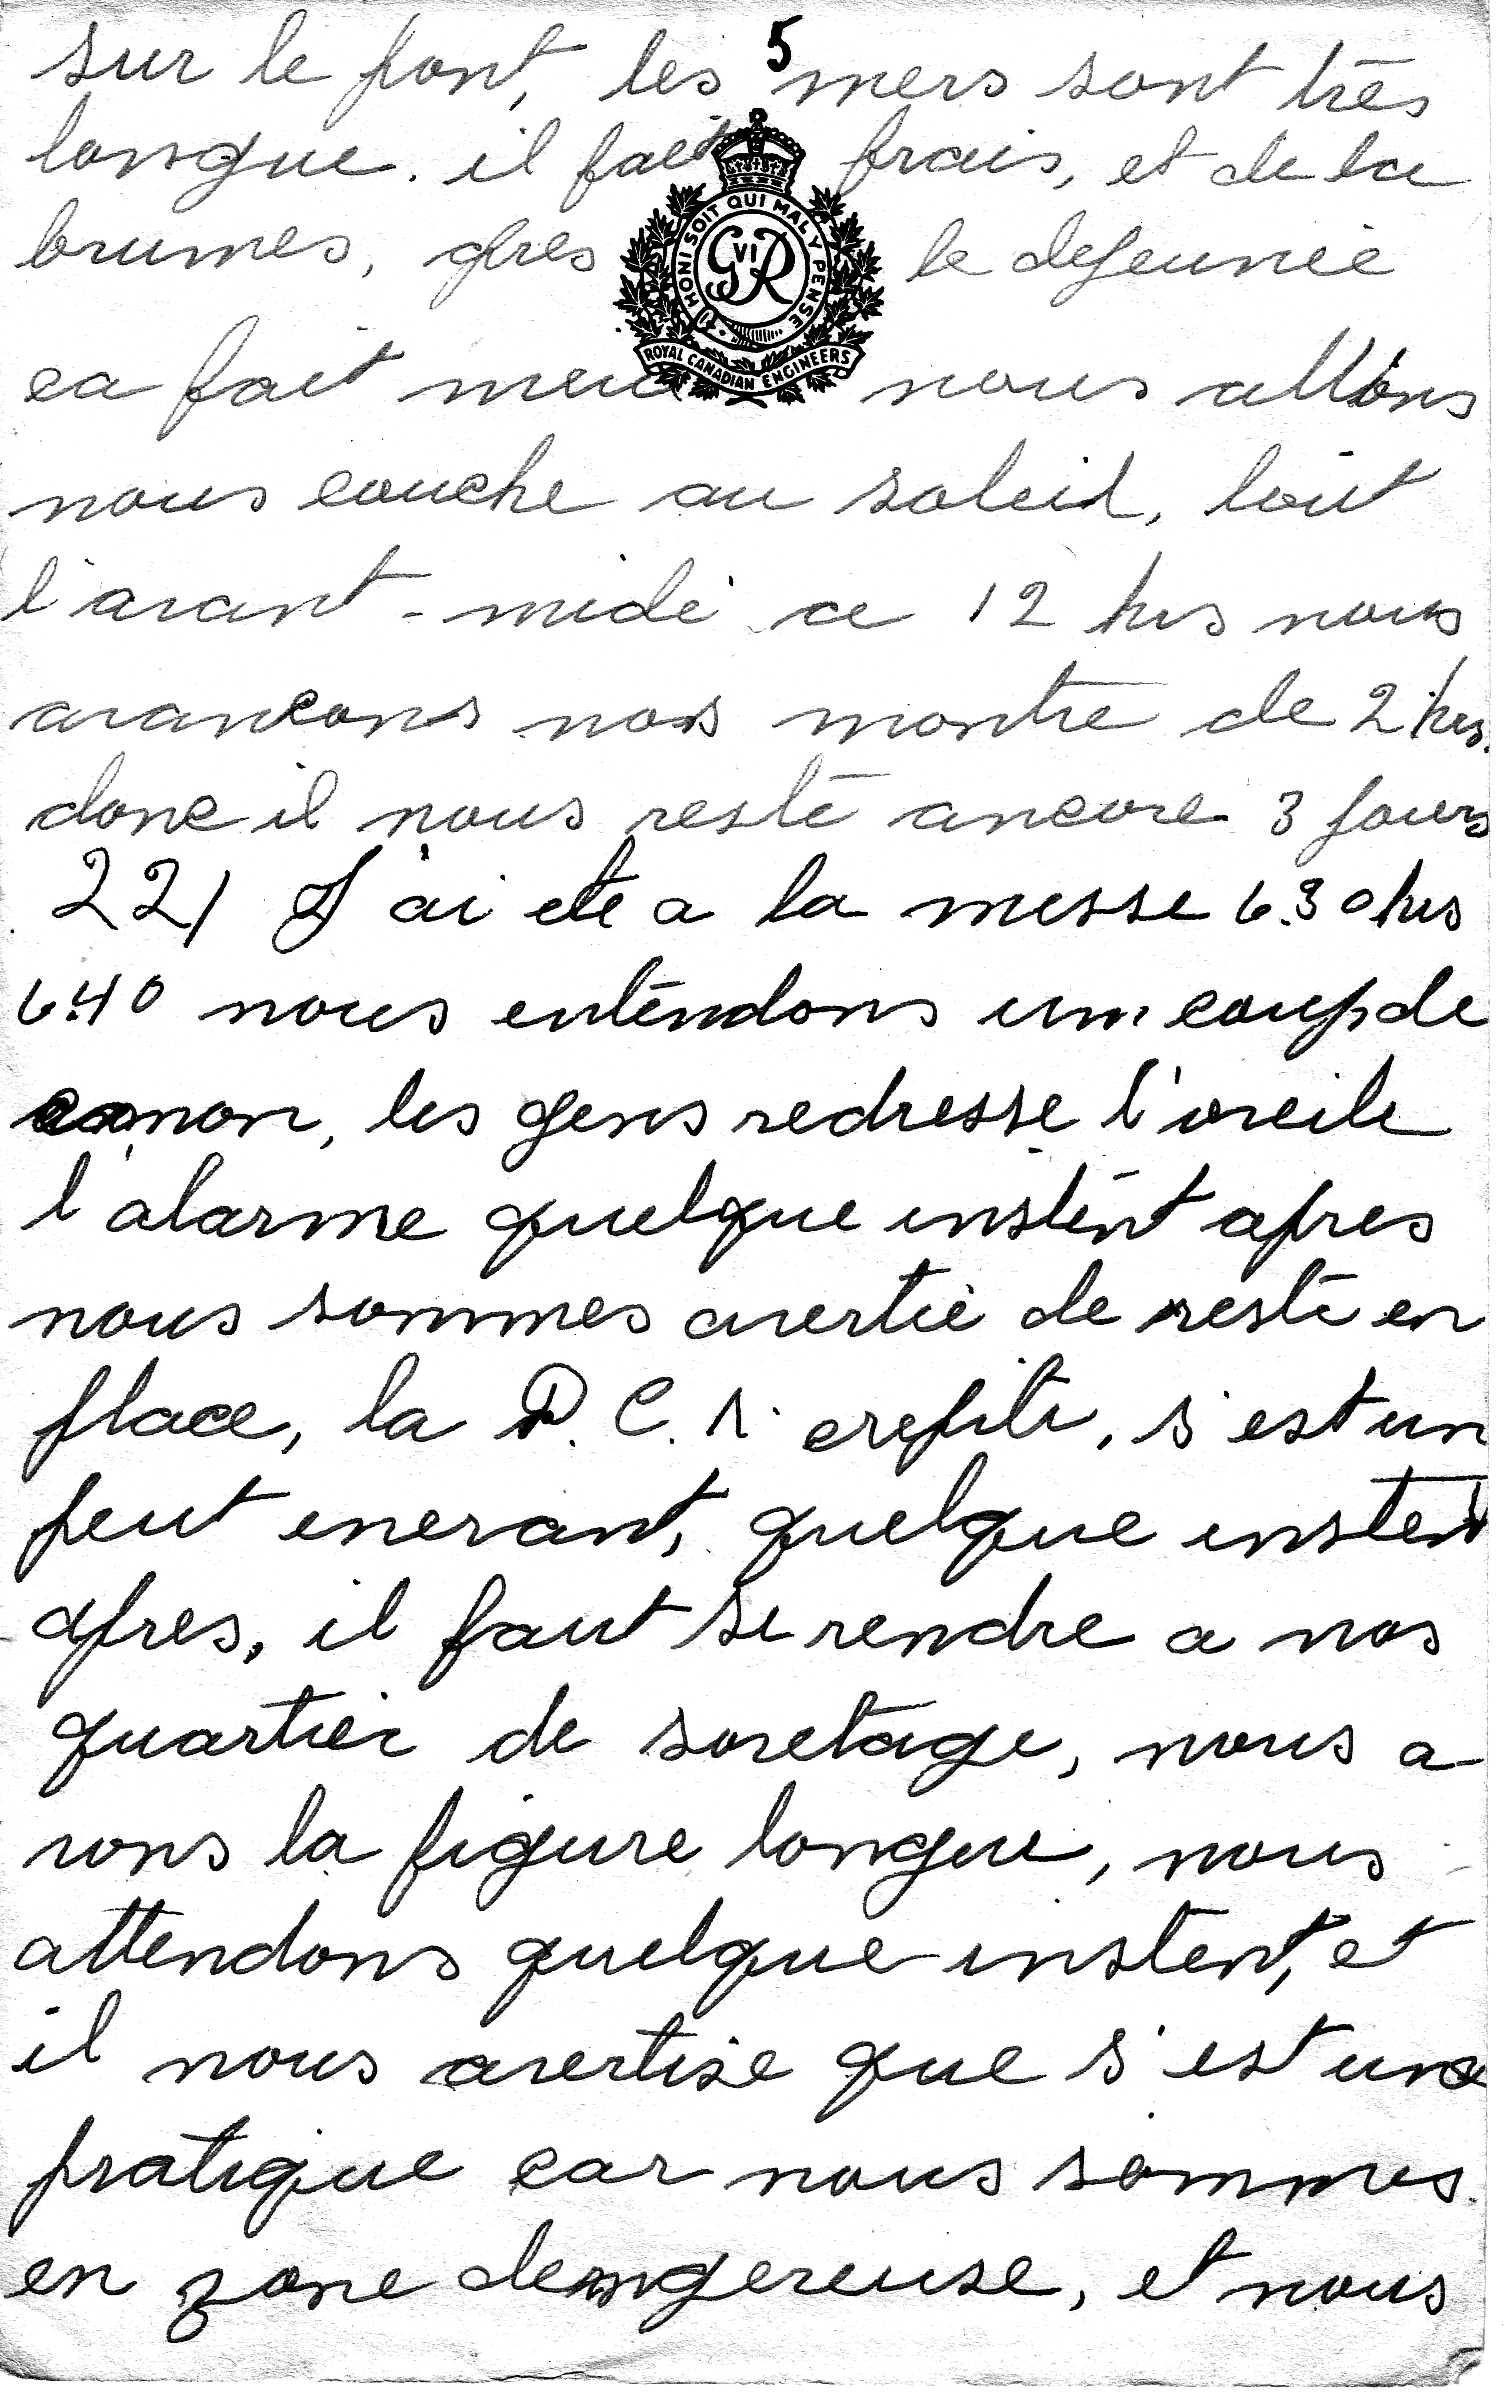 5
sur le pont, les mers sont très
longue. il fait frais, et de la
brumes, apres le dejeunée
HONI SOIT QUI MAL Y PENSE
G VI R
ROYAL CANADIAN ENGINEERS
ca fait nous allons
nous couche au soleil, tout
l'avant-midi a 12 hrs nous
avancons nos montre de 2 hrs.
donc il nous reste ancore 3 jours
22/ J'ai ete a la messe 6.30 hrs
6.40 nous entendons un coup de
canon, les gens redresse l'oreile
l'alarme quelque instent apres
nous sommes avertie de reste en
place, la D.C.A. crepite, s'est un
peut enervant, quelque instent
apres, il faut se rendre a nos
quartier de sovetage, nous a-
vons la figure longue, nous
attendons quelque instent, et
il nous avertise que s'est une
pratique car nous sommes
en zone dengereuse, et nous